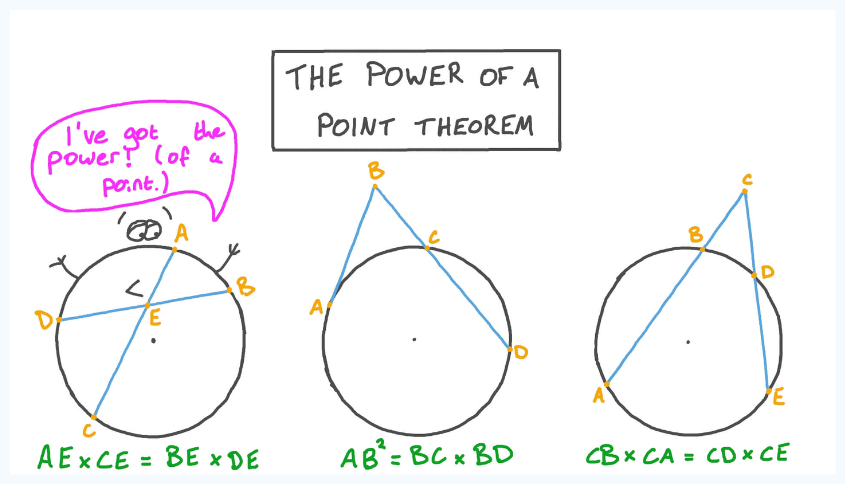 THE POWER OF A
POINT THEOREM
I've got the
power! (of a
point.)
A
B
D
E
C
AE×CE = BE×DE
B
C
A
D
AB² = BC×BD
C
B
D
A
E
CB×CA = CD×CE